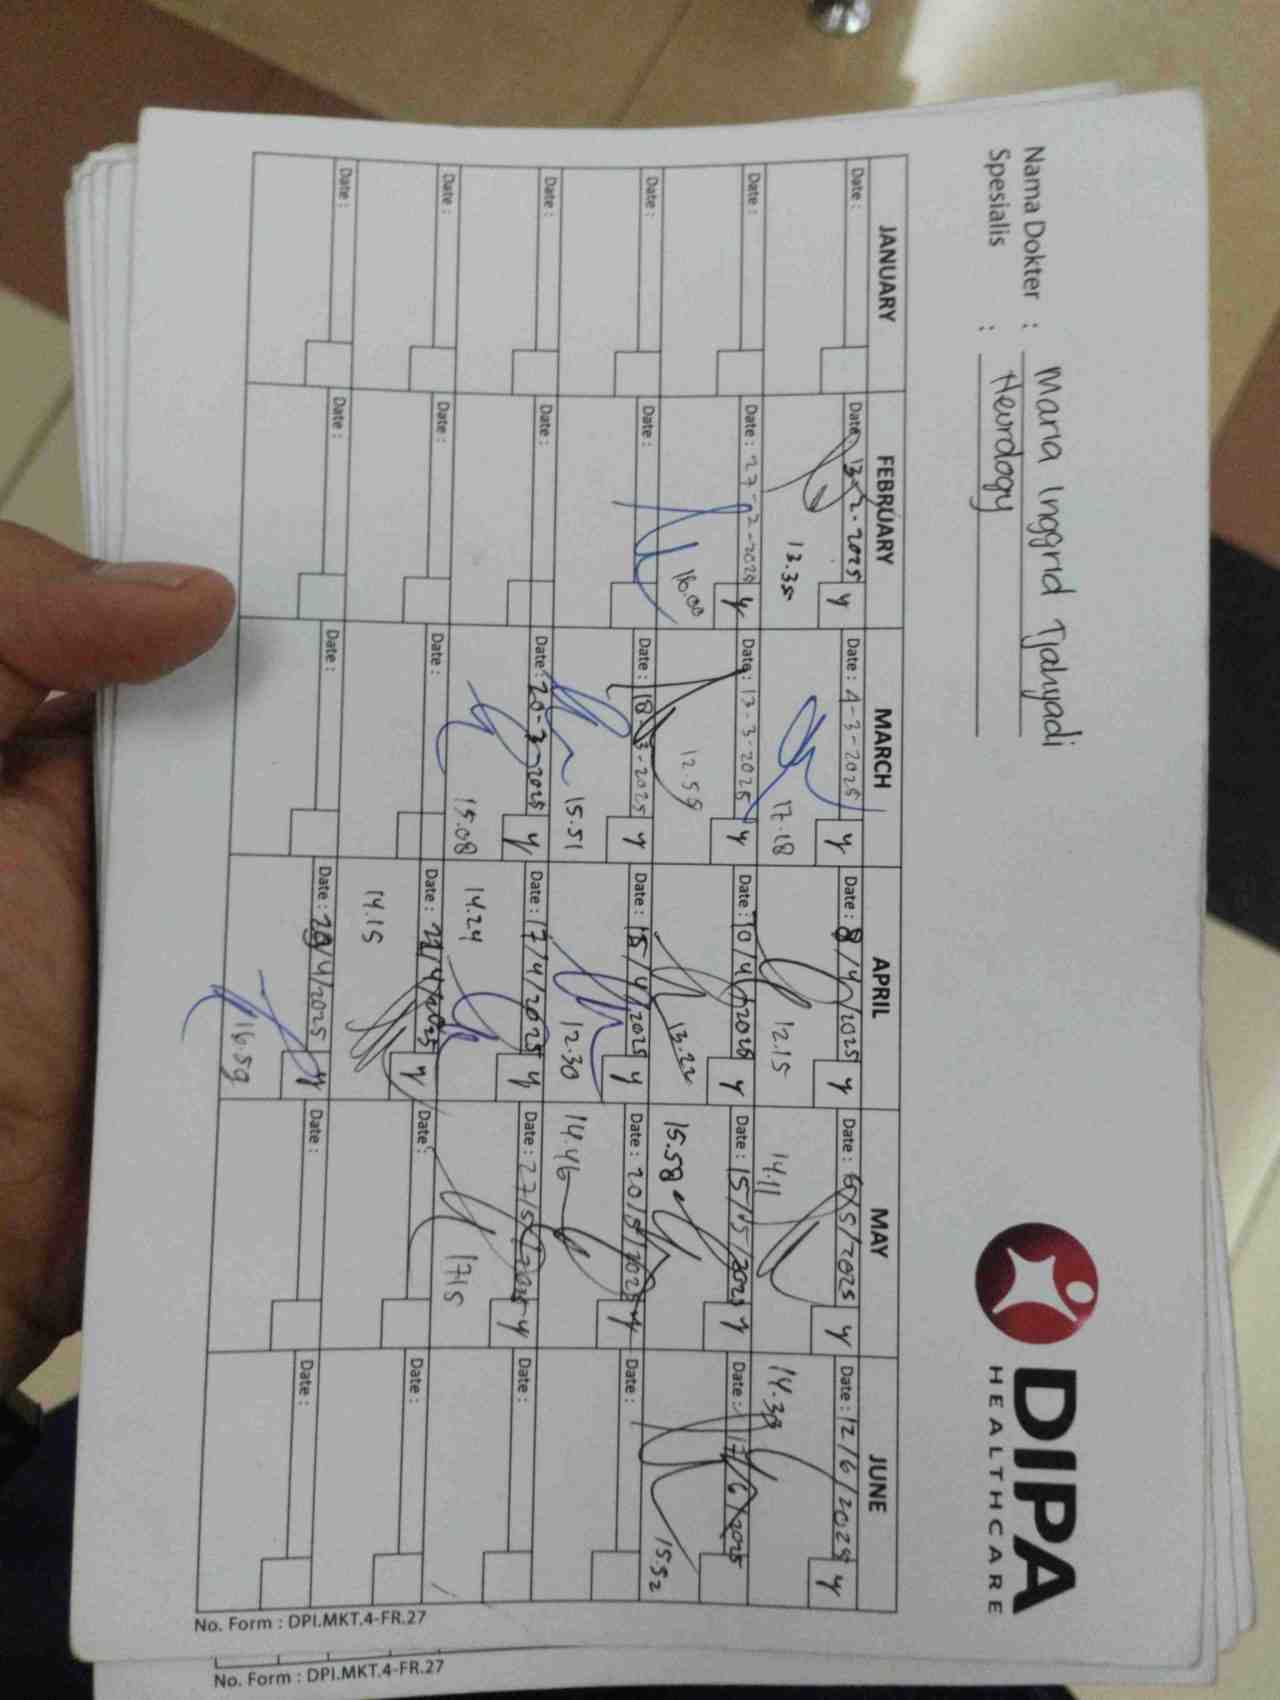 DIPA
HEALTHCARE
Nama Dokter : Maria Inggrid Tjahyadi
Spesialis : Neurology
JANUARY FEBRUARY MARCH APRIL MAY JUNE
Date : Date : 13-2-2025 y Date : 4-3-2025 y Date : 8/4/2025 y Date : 6/5/2025 y Date : 12/6/2025 y
13.35 17.18 12.15 14.11 14.38
Date : Date : 27-2-2025 y Date : 13-3-2025 y Date : 10/4/2025 y Date : 15/5/2025 y Date : 17/6/2025
16.00 12.55 13.22 15.58 15.52
Date : Date : Date : 18-3-2025 y Date : 15/4/2025 y Date : 20/5/2025 y Date :
15.51 12.30 14.46
Date : Date : Date : 20-3-2025 y Date : 17/4/2025 y Date : 27/5/2025 y Date :
15.08 14.24 1715
Date : Date : Date : Date : /4/2025 y Date : Date :
14.15
Date : Date : Date : Date : /4/2025 y Date : Date :
16.59
No. Form : DPI.MKT.4-FR.27
No. Form : DPI.MKT.4-FR.27